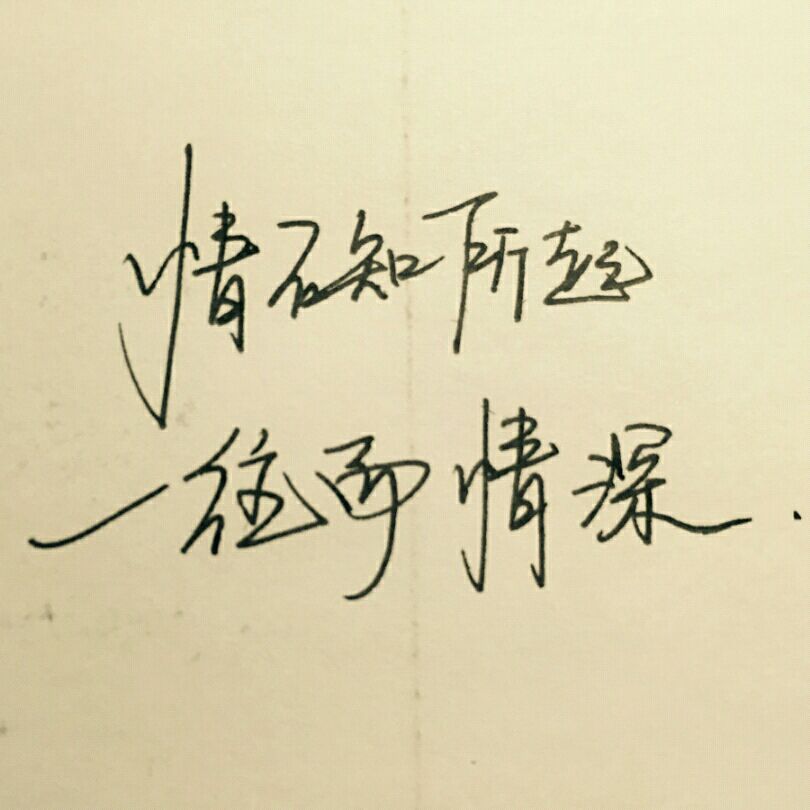 情不知所起
一往而情深.